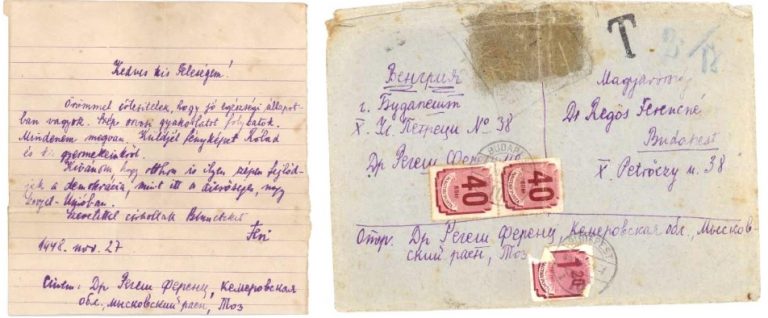 Kedves kis Feleségem!
Örömmel értesítelek, hogy jó egészségi állapot-
ban vagyok. Szép orvosi gyakorlatot folytatok.
Mindenem megvan. Küldjél fényképet Rólad
és kis gyermekeinkről.
Kívánom, hogy otthon is ilyen szépen fejlőd-
jék a demokrácia, mint itt a dicsőséges, nagy
Unióban.
Szeretettel csókollak Benneteket
Feri
1948. nov. 27
Címem: Др Регеш Ференц, Кемеровская
обл., мысковский раен, Тоз
T
Венгрия
г. Будапешт
X Ул. Петреци № 38
Др Регеш
Magyarország
Dr Regős Ferencné
Budapest
X Petróczy u. 38
40
40
Отпр. Др Регеш Ференц, Кемеровская обл., Мысков-
ский раен, Тоз
1.20
BUDAPEST